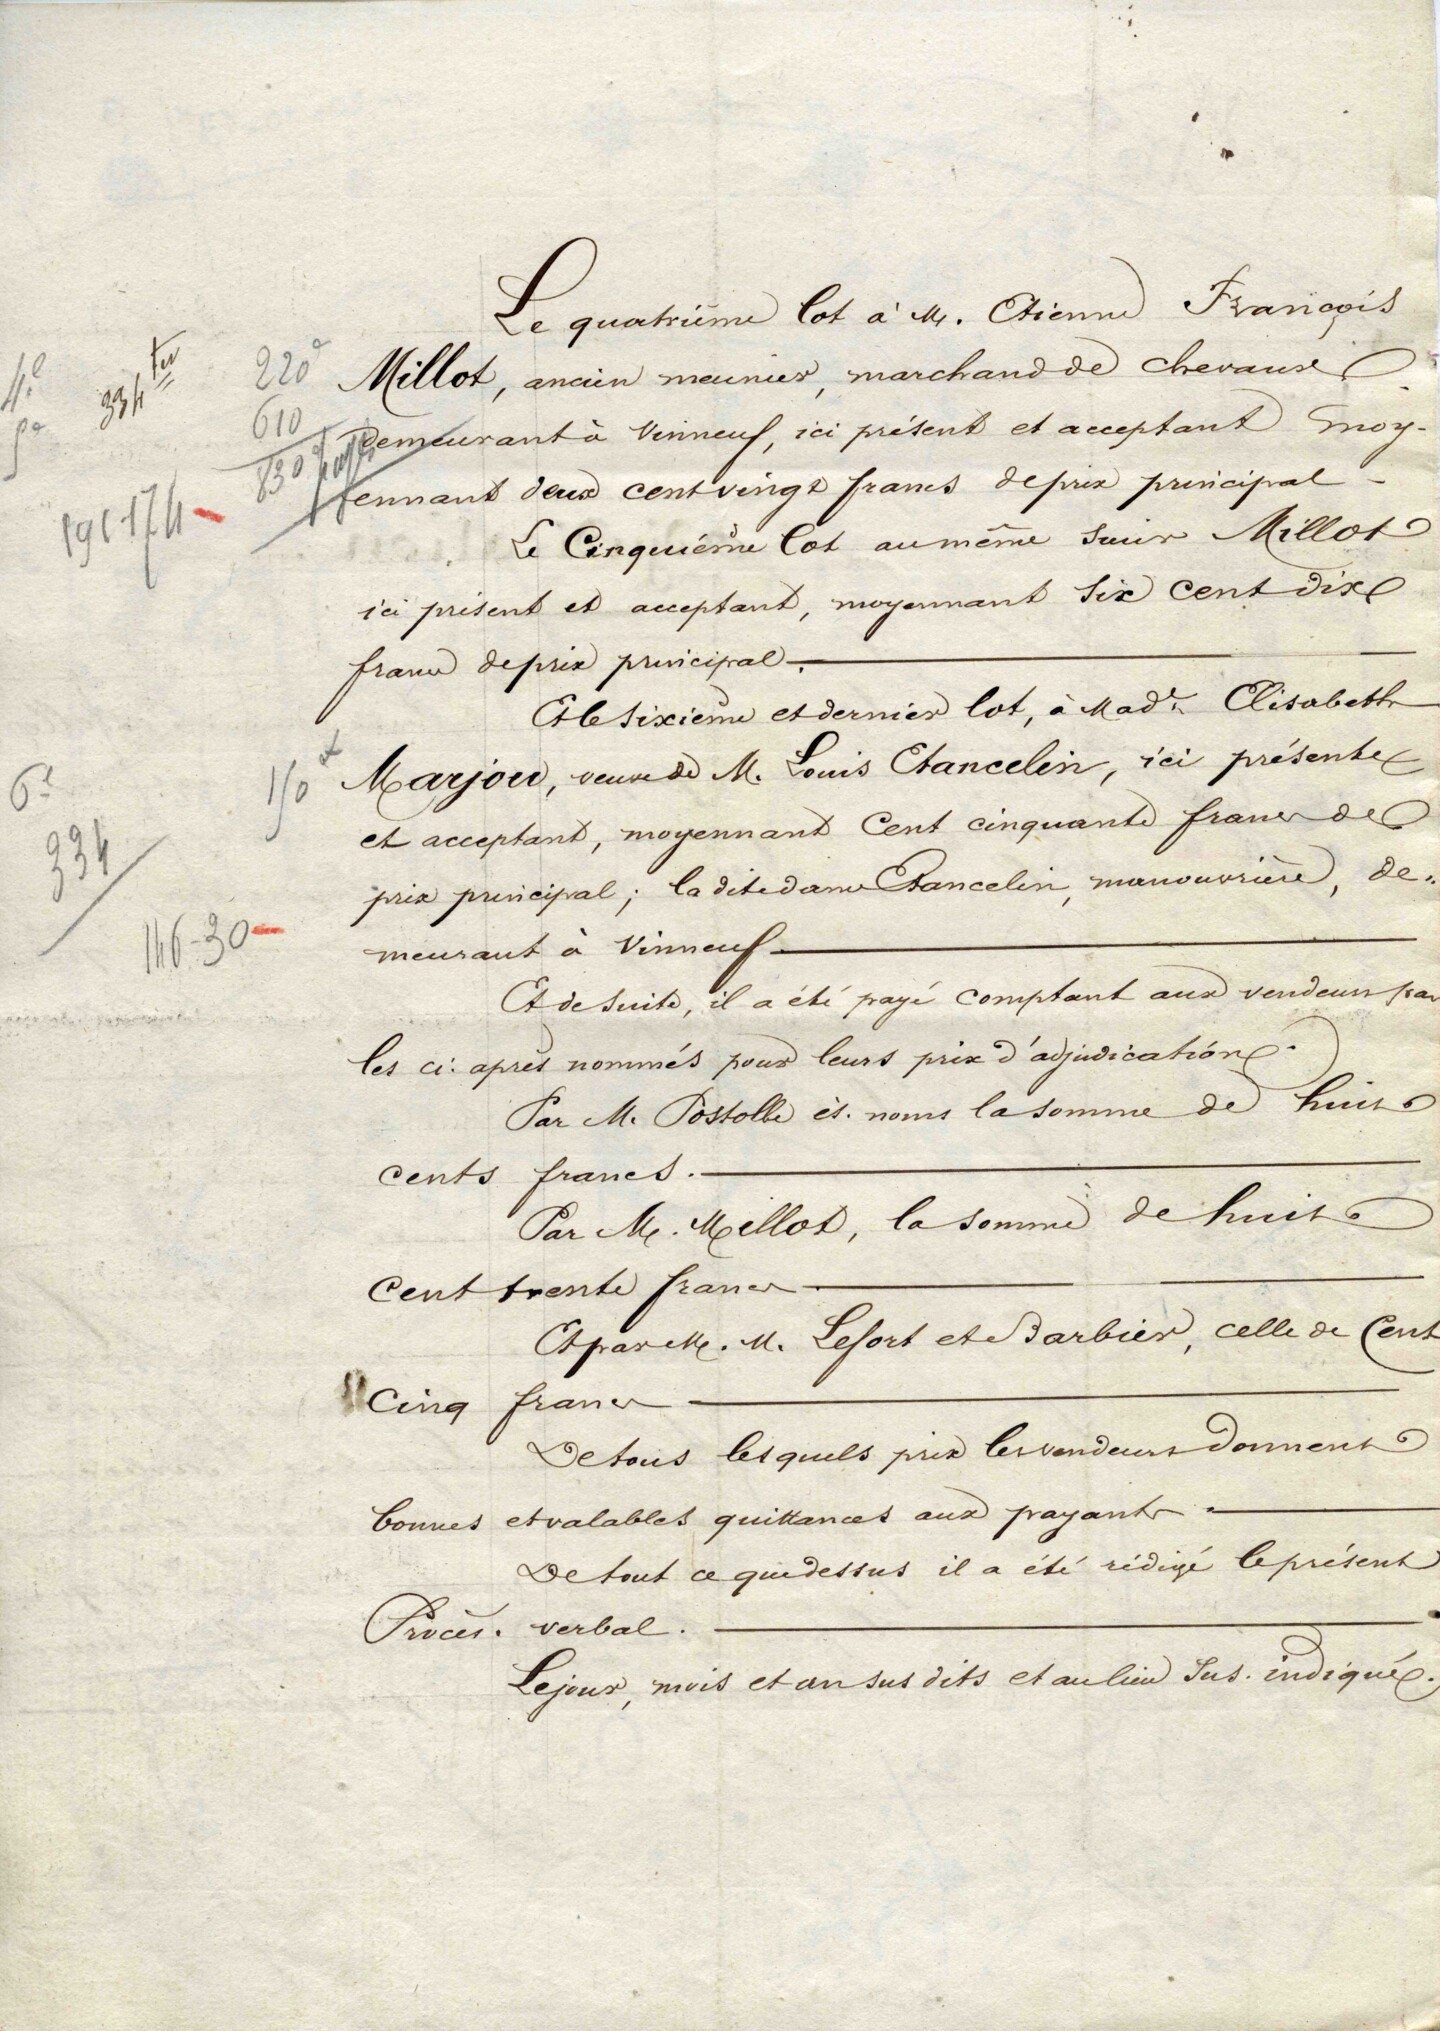 Le quatrième lot à M. Etienne François
4e 334 ter 220f Millot, ancien meunier, marchand de chevaux
5e 610 demeurant à Vinneuf, ici présent et acceptant moy-
830f payé ennant deux cent vingt francs de prix principal -
191-174 -
Le Cinquième lot au même sieur Millot
ici présent et acceptant, moyennant six cent dix
francs de prix principal.
Et le sixième et dernier lot, à Made Elisabeth
6e 150f Marjou, veuve de M. Louis Etancelin, ici présente
334 et acceptant, moyennant Cent cinquante francs de
prix principal ; la dite dame Etancelin, manouvrière, de-
146-30 - meurant à Vinneuf
Et de suite, il a été payé comptant aux vendeurs par
les ci-après nommés pour leurs prix d'adjudication.
Par M. Postolle ès-noms la somme de huit
cents francs.
Par M. Millot, la somme de huit
Cent trente francs
Et par M. M. Lefort et Barbier, celle de Cent
Cinq francs
De tous lesquels prix les vendeurs donnent
bonnes et valables quittances aux payants
De tout ce que dessus il a été rédigé le présent
Procès-verbal.
Le jour, mois et an susdits et au lieu sus-indiqué.